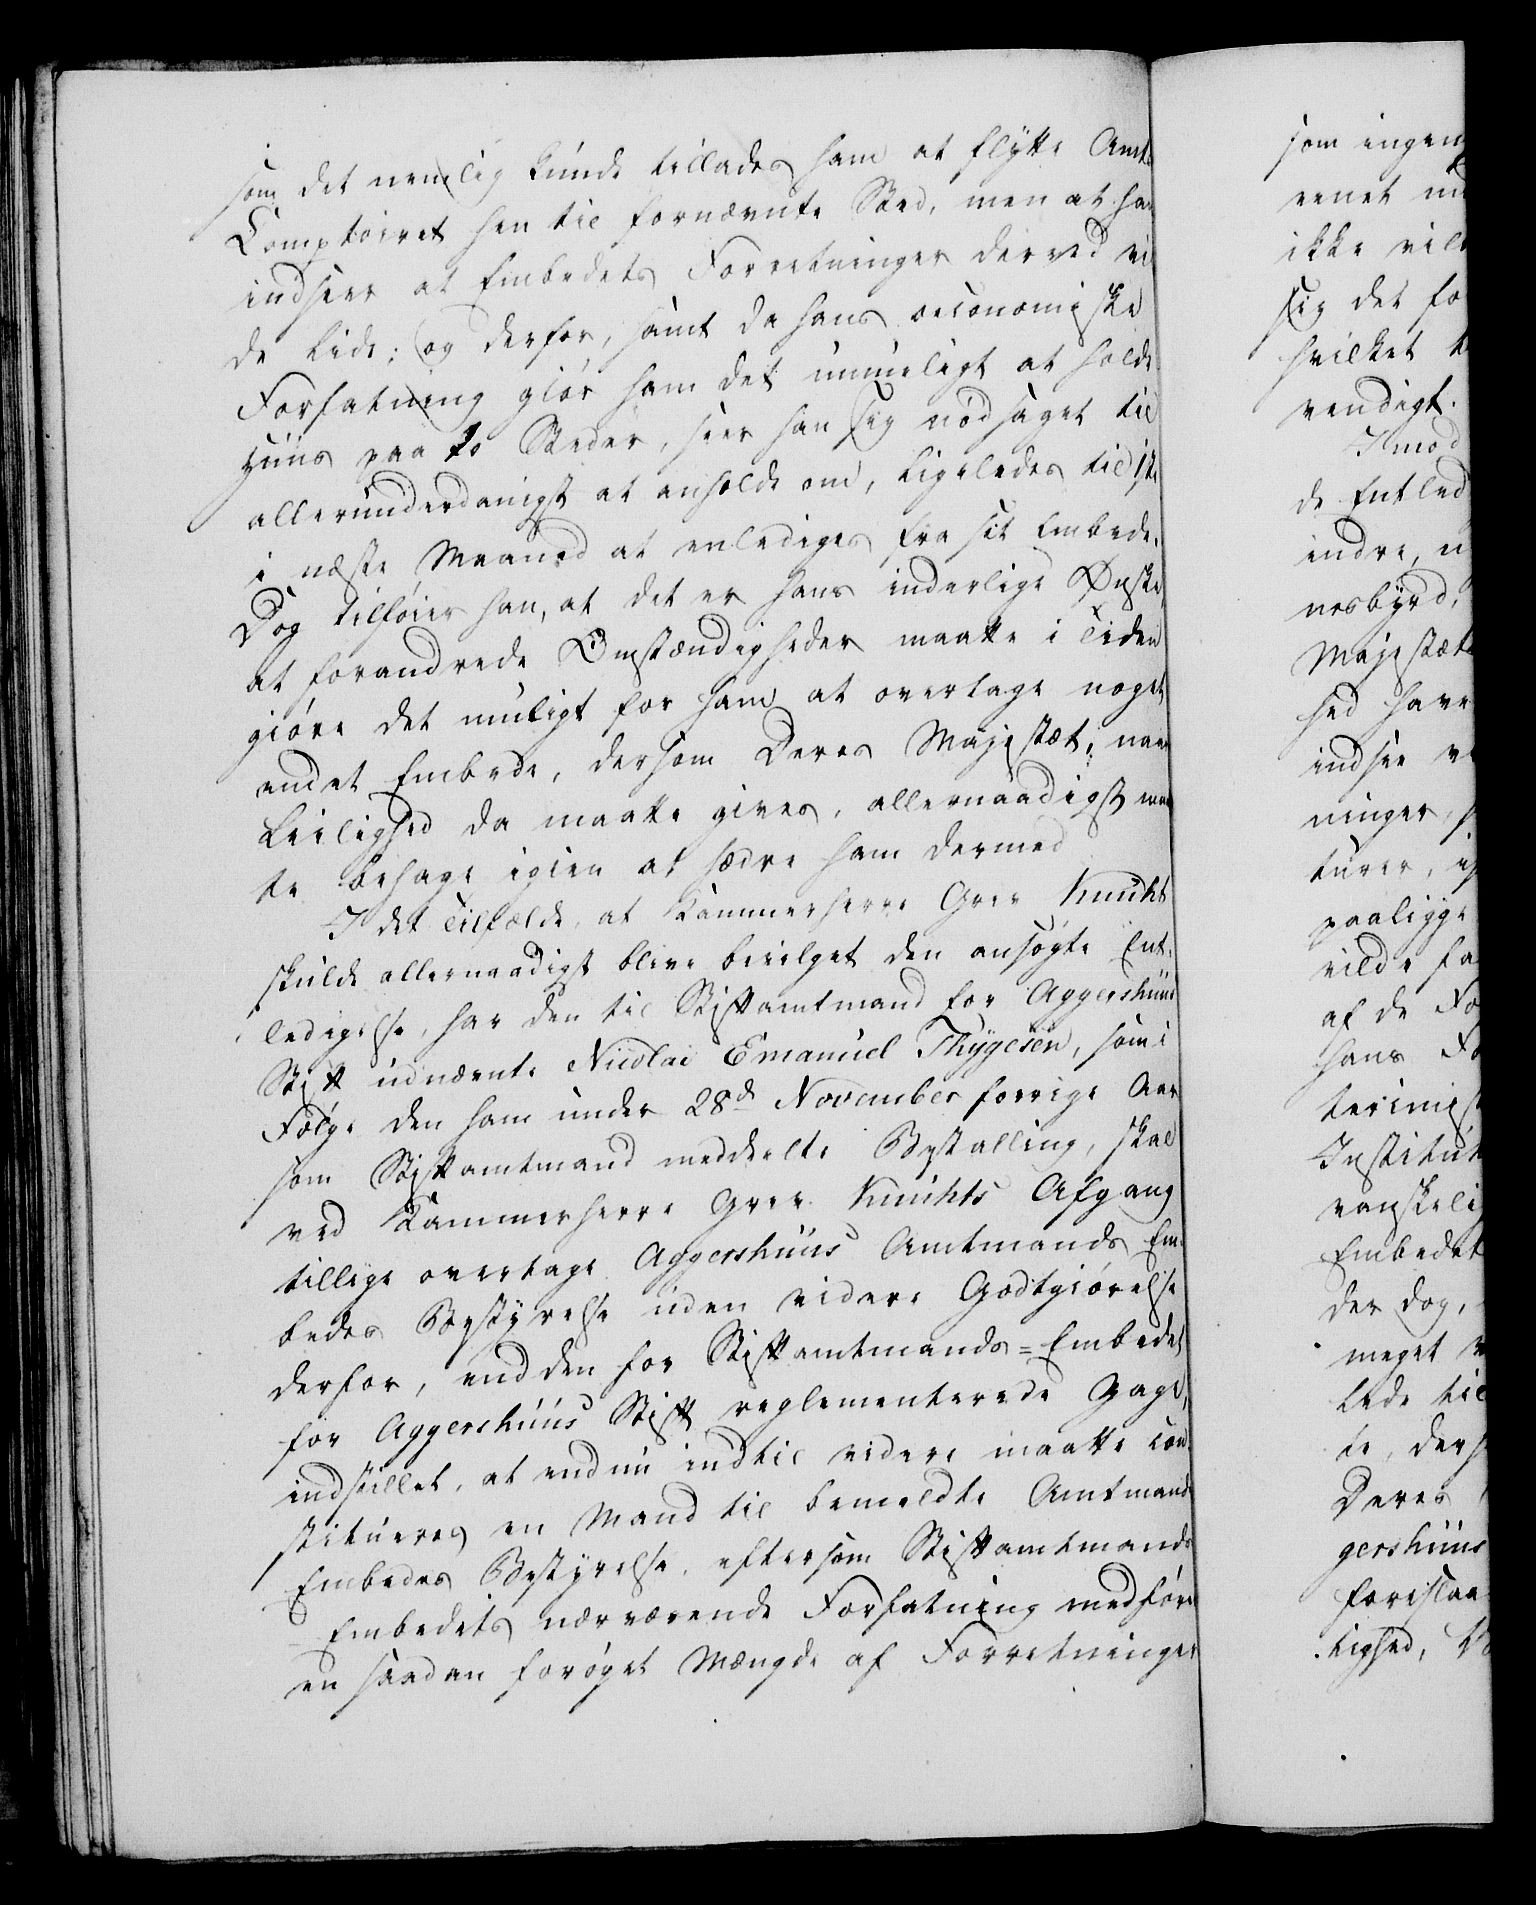 som det nemlig kunde tillades ham at flytte Amt-
Comptoiret hen til fornævnte Sted, men at han
indseer at Embedets Forretninger derved vil-
de lide; og derfor, samt da hans oeconomiske
Forfatning giör ham det umueligt at holde
Huus paa to Steder, seer han sig nødsaget til
allerunderdanigst at anholde om, ligeledes til 1ste
i næste Maaned at enlediges fra sit Embede.
Dog tilföier han, at det er hans inderlige Ønske,
at forandrede Omstændigheder maatte i Tiden
giöre det muligt for ham at overtage noget
andet Embede, dersom Deres Majestæt, naar
Leilighed da maatte gives, allernaadigst maat
te behage igien at hædre ham dermed
I det Tilfælde, at Kammerherre Grev Knuhts
skulde allernaadigst blive bevilget den ansøgte Ent-
ledigelse, har den til Stiftamtmand for Aggershuus
Stift udnævnte Nicolai Emanuel Thygesen, som i
Følge den ham under 28de November forrige Aar
som Stiftamtmand meddeelte Bestalling, skal
ved Kammerherre Grev Knuhts Afgang
tillige overtage Aggershuus Amtmands Em-
bedes Bestyrelse uden videre Godtgiörelse
derfor, end den for Stiftamtmands=Embedet
for Aggershuus Stift reglementerede Gage,
indstillet, at endnu indtil videre maatte con-
stitueres en Mand til bemeldte Amtmands
Embedes Bestyrelse, eftersom Stiftamtmands
Embedets nærværende Forfatning medföre
en saadan forøget Mængde af Forretninger
som ingen
eenet
ikke vil
sig det fo
hvilket
vendigt.
Imod
de Entled
indre,
nesbyrd,
Majestæt
hed have
indsee
ninger,
turer,
paaligge
vilde fa
af de Fo
hans Fo
terimist
Institut
vanskelig
Embedet
der dog,
meget
lede til
te, ders
Deres
gershuus
foreslaa
lighed,